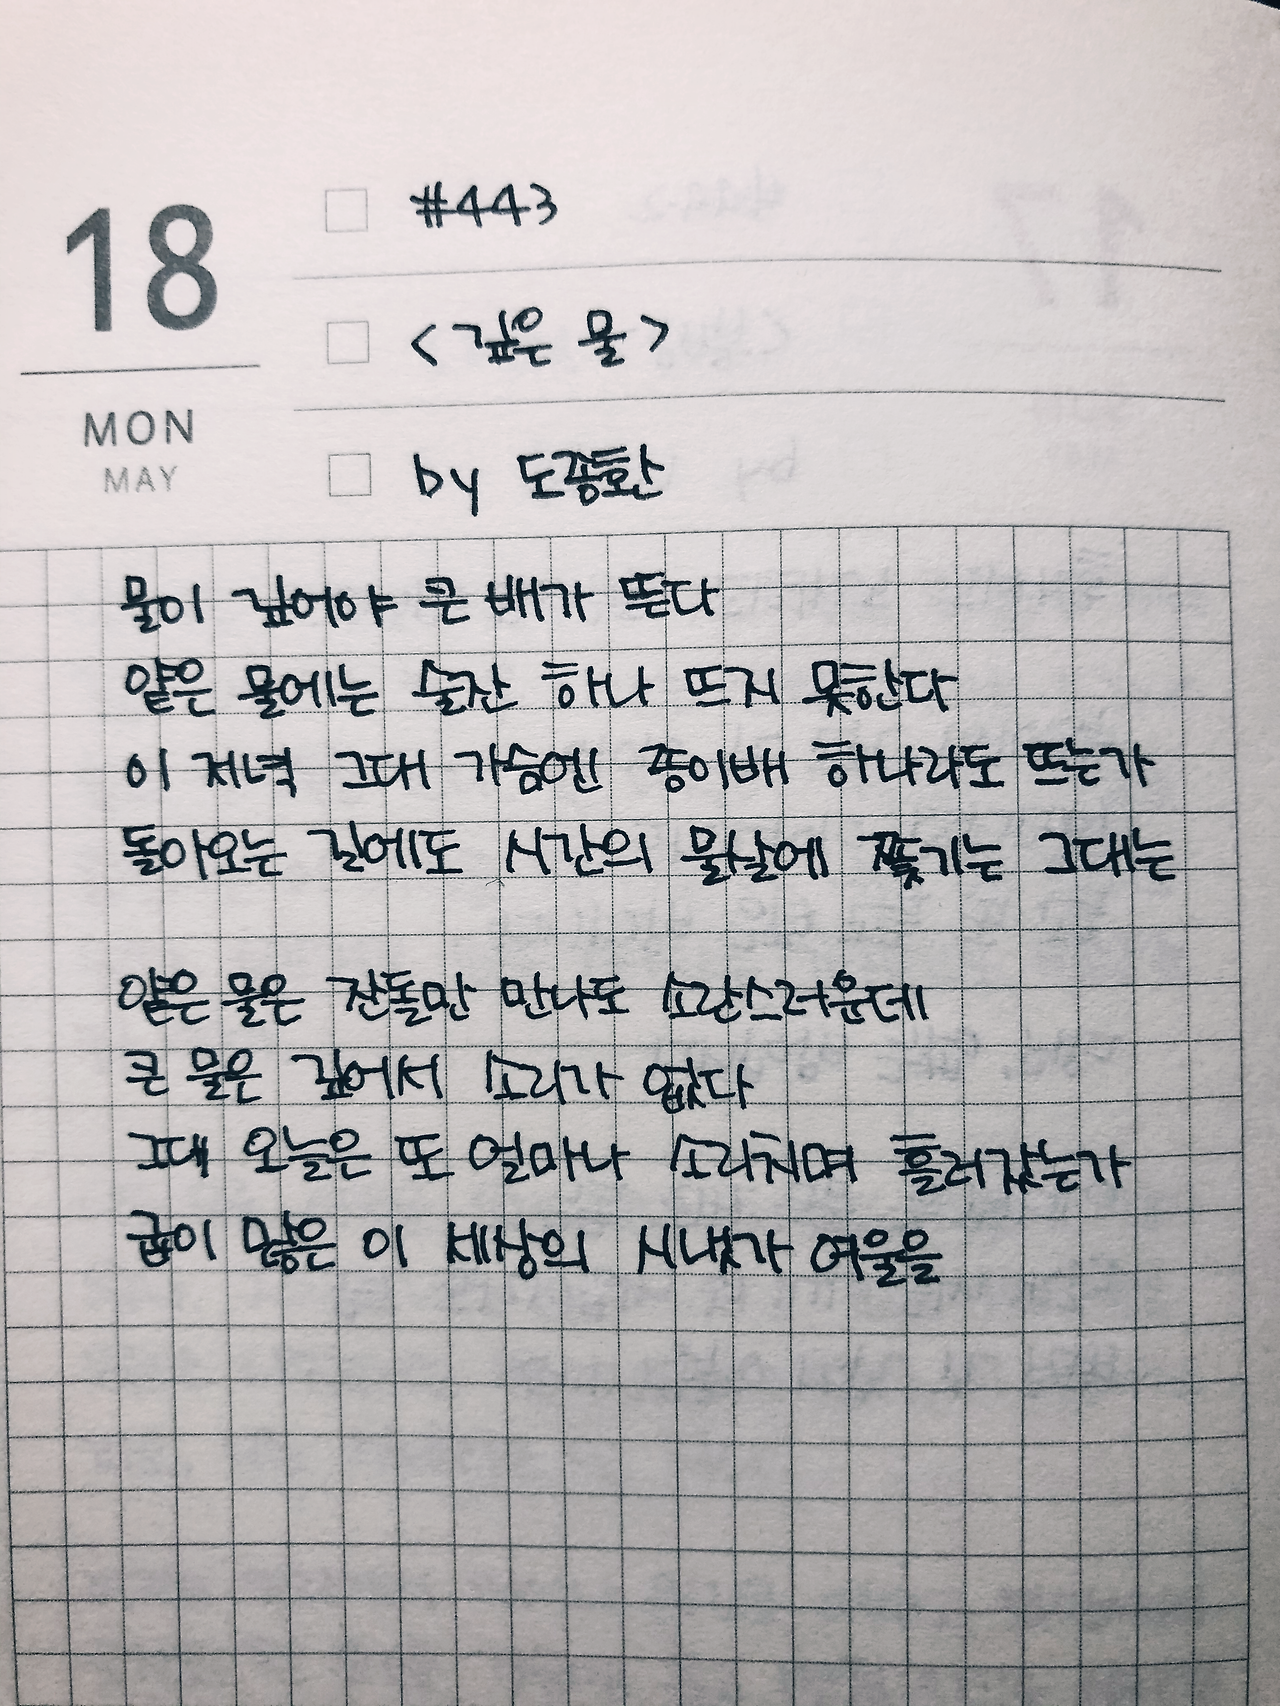 18
MON
MAY
#443
<깊은 물>
by 도종환
물이 깊어야 큰 배가 뜬다
얕은 물에는 술잔 하나 뜨지 못한다
이 저녁 그대 가슴엔 종이배 하나라도 뜨는가
돌아오는 길에도 시간의 물살에 쫓기는 그대는
얕은 물은 잔돌만 만나도 소란스러운데
큰 물은 깊어서 소리가 없다
그대 오늘은 또 얼마나 소리치며 흘러갔는가
굽이 많은 이 세상의 시냇가 여울을